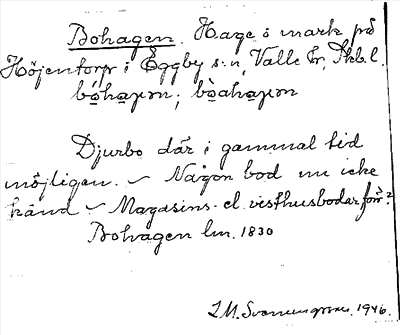 Bohagen. Hage o mark på
Höjentorp i Eggby s:n, Valle hr, Skb.l.
Djurbo där i gammal tid
möjligen. ~ Någon bod nu icke
känd ~ Magasins- el. visthusbodar, förr?
Bohagen lm. 1830
1946.